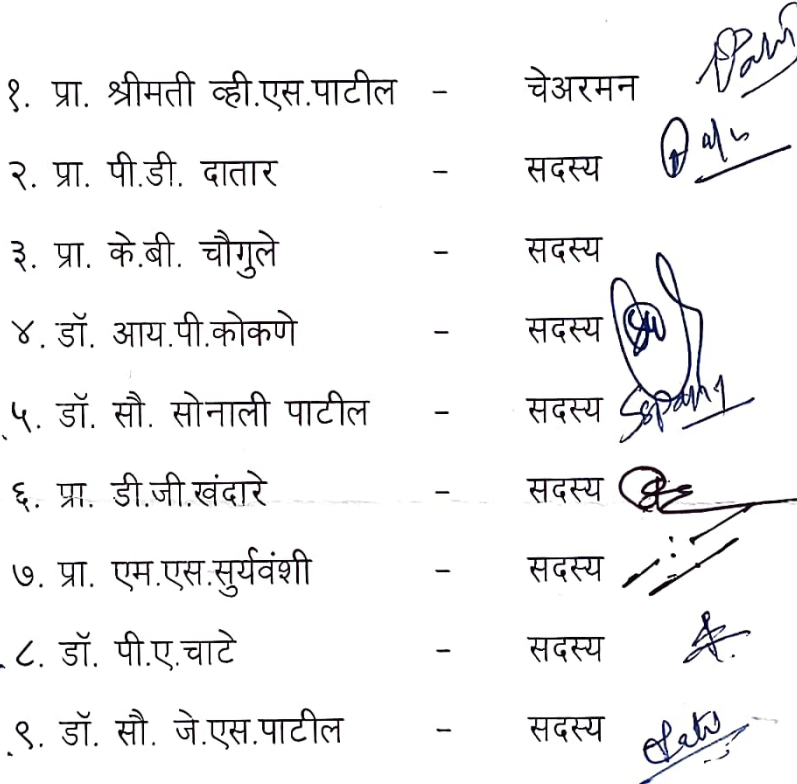 १. प्रा. श्रीमती व्ही.एस.पाटील - चेअरमन
२. प्रा. पी.डी. दातार - सदस्य
३. प्रा. के.बी. चौगुले - सदस्य
४. डॉ. आय.पी.कोकणे - सदस्य
५. डॉ. सौ. सोनाली पाटील - सदस्य
६. प्रा. डी.जी.खंदारे - सदस्य
७. प्रा. एम.एस.सुर्यवंशी - सदस्य
८. डॉ. पी.ए.चाटे - सदस्य
९. डॉ. सौ. जे.एस.पाटील - सदस्य